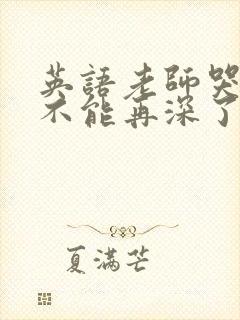 英語老師哭
不能再深了
夏滿芒